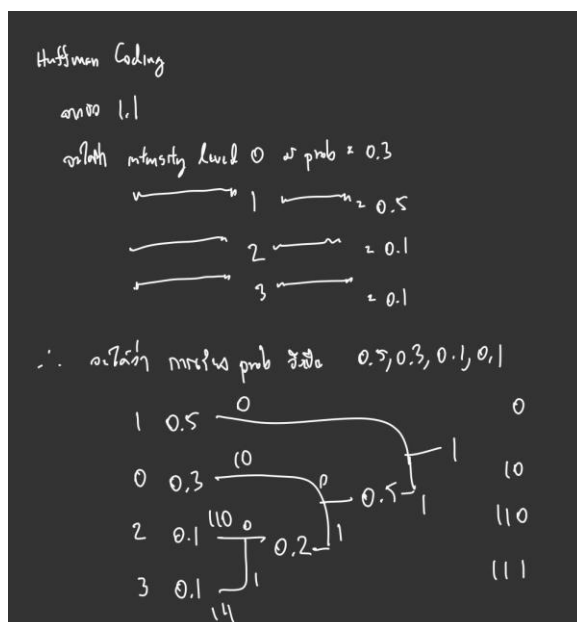 Huffman Coding
จากข้อ 1.1
จะได้ว่า intensity level 0 มี prob = 0.3
1 = 0.5
2 = 0.1
3 = 0.1
∴ จะได้ว่า prob คือ 0.5, 0.3, 0.1, 0.1
1 0.5 0 1 0
0 0.3 10 0 0.5 1 10
2 0.1 110 0 0.2 1 110
3 0.1 1 111
111